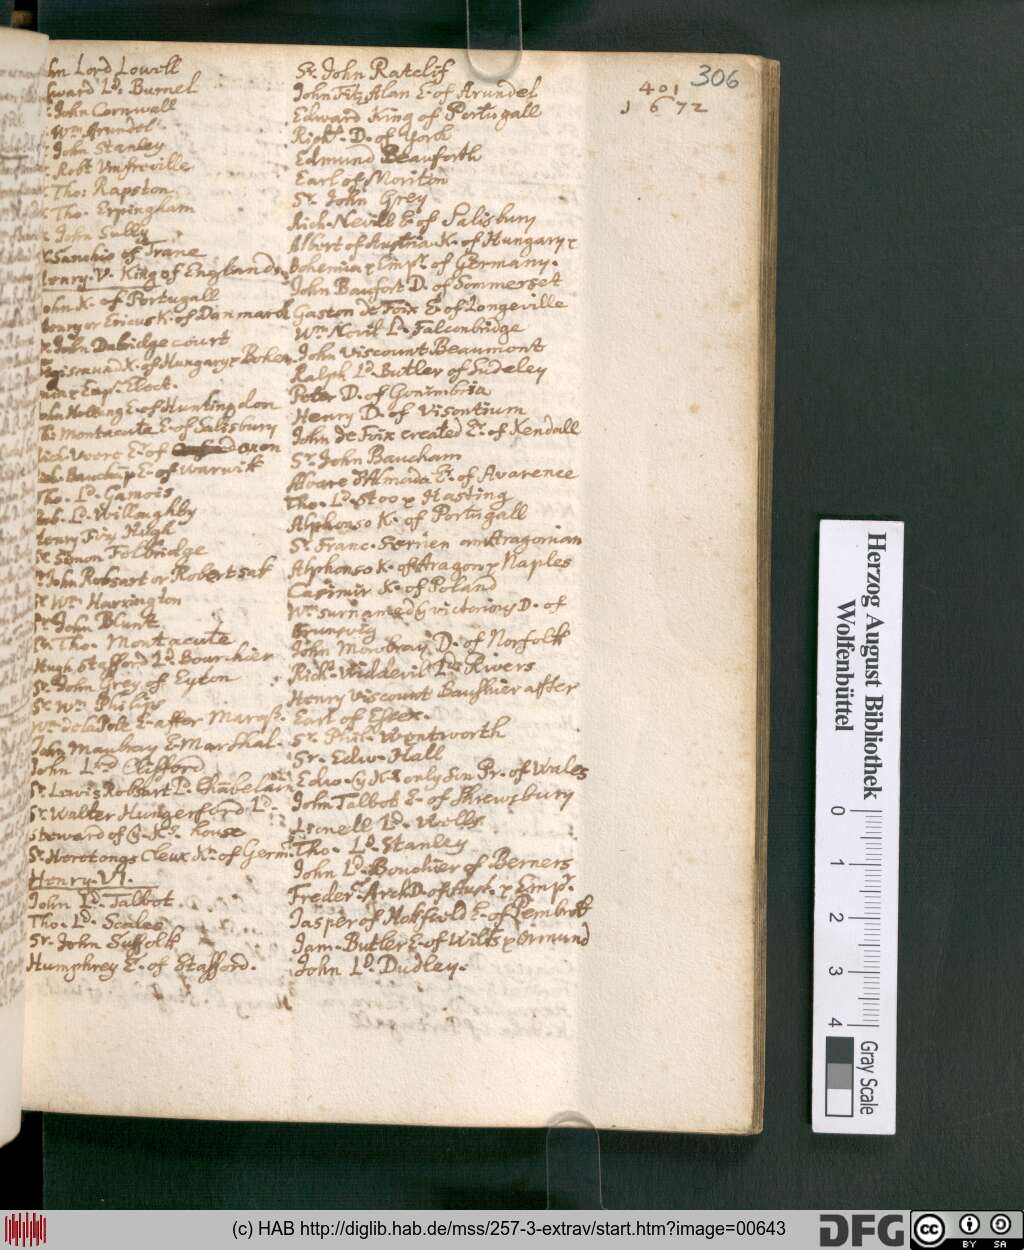 306
401
1672
Lord Lowell
Ld. Burnel
John Cornwall
Wm. Arundel
John Stanley
Robt. Vmfreville
Tho: Rapston
Tho. Erpingham
John Sully
Sanchio of Trane
Henry. V. King of England
John K. of Portugall
Henry or Ericus K. of Danmark
John Dabridgecourt
K. of Hungary & Bohem
& Empr. Elect.
John Holland E. of Huntingdon
Tho: Montacute E. of Salisbury
Rich. Veere E. of Oxon
Rob. Bauchap E. of Warwik
Tho. Ld. Gamois
Rob. Ld. Willoughby
Henry Fitz Hugh
Sr. Simon Felbridge
Sr. John Robsart or Robertsak
Sr. Wm. Harrington
Sr. John Blunt
Sr. Tho. Montacute
Hugh Stafford Ld. Bourchier
Sr. John Grey of Eyton
Sr. Wm. Philips
Wm. de la Pole E. after Marqs.
John Maubray E. Marshal.
John Lrd Clifford
Sr. Lewis Robsart Ld. Chabelain
Sr. Walter Hungerford Ld.
Steward of ye Ks. house
Sr. Heretongs Cleux Kt. of Germ.
Henry. VI.
John Ld. Talbot
Tho. Ld. Scales
Sr. John Suffolk
Humphrey E. of Stafford.
Sr. John Ratclif
John Fitz Alan E. of Arundel
Edward King of Portugall
Richd. D. of York
Edmund Beauforth
Earl of Moriton
Sr. John Grey
Rich. Nevill E. of Salisbury
Albert of Austria K. of Hungary &
Bohemia & Empr. of Germany.
John Baufort D. of Sommerset
Gaston de Foix E. of Longeville
Wm. Nevil Ld. Falconbridge
John Viscount Beaumont
Ralph Ld. Butler of Sudeley
Peter D. of Gonimbria
Henry D. of Visontium
John de Foix created E. of Kendall
Sr. John Baucham
Alvare d'Almada E. of Avarence
Tho. Ld. Stoo & Hasting
Alphonso K. of Portugall
Sr. Franc. Serrien an Aragonian
Alphonso K. of Aragon & Naples
Casimir K. of Poland
Wm. surnamed ye victorious D. of
Brunswig
John Mowbray D. of Norfolk
Rich. Widdevil Ld. Rivers
Henry Viscount Baushier after
Earl of Essex.
Sr. Phil. Wentworth
Sr. Edw. Hall
Edw. ye Ks. only Sin Pr. of Wales
John Talbot E. of Shrewsbury
Lionell Ld. Wells
Tho. Ld. Stanley
John Ld. Bouchier of Berners
Freder. ArchD. of Aust. & Empr.
Jasper of Hatfield E. of Pembrok
Jam. Butler E. of Wilts & Ormund
John Ld. Dudley.
Herzog August Bibliothek
Wolfenbüttel
0 1 2 3 4
Gray Scale
(c) HAB http://diglib.hab.de/mss/257-3-extrav/start.htm?image=00643
DFG
cc BY SA